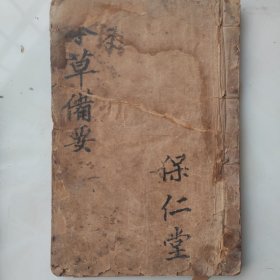 本草備要
保仁堂